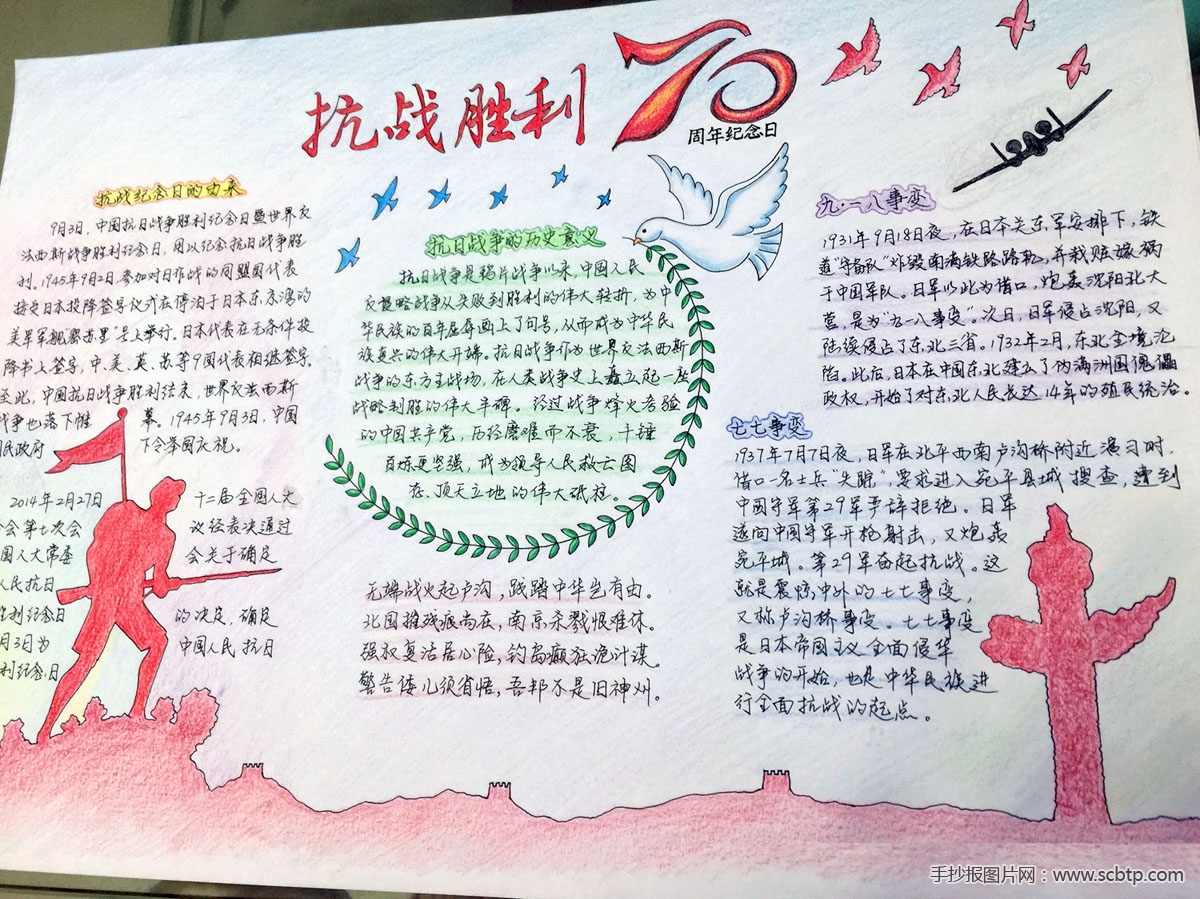 抗战胜利70
周年纪念日
抗战纪念日的由来
9月3日,中国抗日战争胜利纪念日暨世界反
法西斯战争胜利纪念日,用以纪念抗日战争胜
利。1945年9月2日,参加对日作战的同盟国代表
接受日本投降签字仪式在停泊于日本东京湾的
美军军舰"密苏里"号上举行。日本代表在无条件投
降书上签字,中、美、英、苏等9国代表相继签字。
至此,中国抗日战争胜利结束,世界反法西斯
战争也落下帷幕。1945年9月3日,中国
国民政府下令举国庆祝。
2014年2月27日 十二届全国人大
会第七次会 议经表决通过
国人大常委 会关于确定
人民抗日
胜利纪念日 的决定,确定
月3日为 中国人民抗日
利纪念日
抗日战争的历史意义
抗日战争是鸦片战争以来,中国人民
反侵略战争从失败到胜利的伟大转折,为中
华民族的百年屈辱画上了句号,从而成为中华民
族复兴的伟大开端。抗日战争作为世界反法西斯
战争的东方主战场,在人类战争史上矗立起一座
战略制胜的伟大丰碑。经过战争烽火考验
的中国共产党,历经磨难而不衰,千锤
百炼更坚强,成为领导人民救亡图
存、顶天立地的伟大砥柱。
无端战火起卢沟,践踏中华岂有由。
北国摧残痕尚在,南京杀戮恨难休。
强权复活居心险,钓岛癫狂诡计谋。
警告倭儿须省悟,吾邦不是旧神州。
九·一八事变
1931年9月18日夜,在日本关东军安排下,铁
道"守备队"炸毁南满铁路路轨,并栽赃嫁祸
于中国军队。日军以此为借口,炮轰沈阳北大
营,是为"九一八事变"。次日,日军侵占沈阳,又
陆续侵占了东北三省。1932年2月,东北全境沦
陷。此后,日本在中国东北建立了伪满洲国傀儡
政权,开始了对东北人民长达14年的殖民统治。
七七事变
1937年7月7日夜,日军在北平西南卢沟桥附近演习时,
借口一名士兵"失踪",要求进入宛平县城搜查,遭到
中国守军第29军严辞拒绝。日军
遂向中国守军开枪射击,又炮轰
宛平城。第29军奋起抗战。这
就是震惊中外的七七事变,
又称卢沟桥事变。七七事变
是日本帝国主义全面侵华
战争的开始,也是中华民族进
行全面抗战的起点。
手抄报图片网:www.scbtp.com